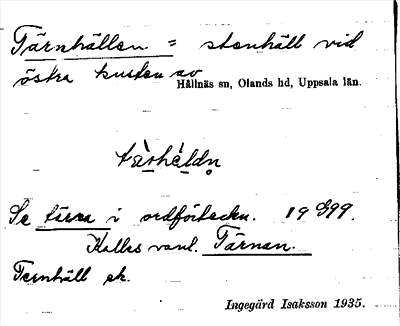 Tärnhällen = stenhäll vid
östra kusten av
Hållnäs sn, Olands hd, Uppsala län.
Se tärna i ordförteckn. 19
Kallas vanl. Tärnan.
Ternhäll ek.
Ingegärd Isaksson 1935.